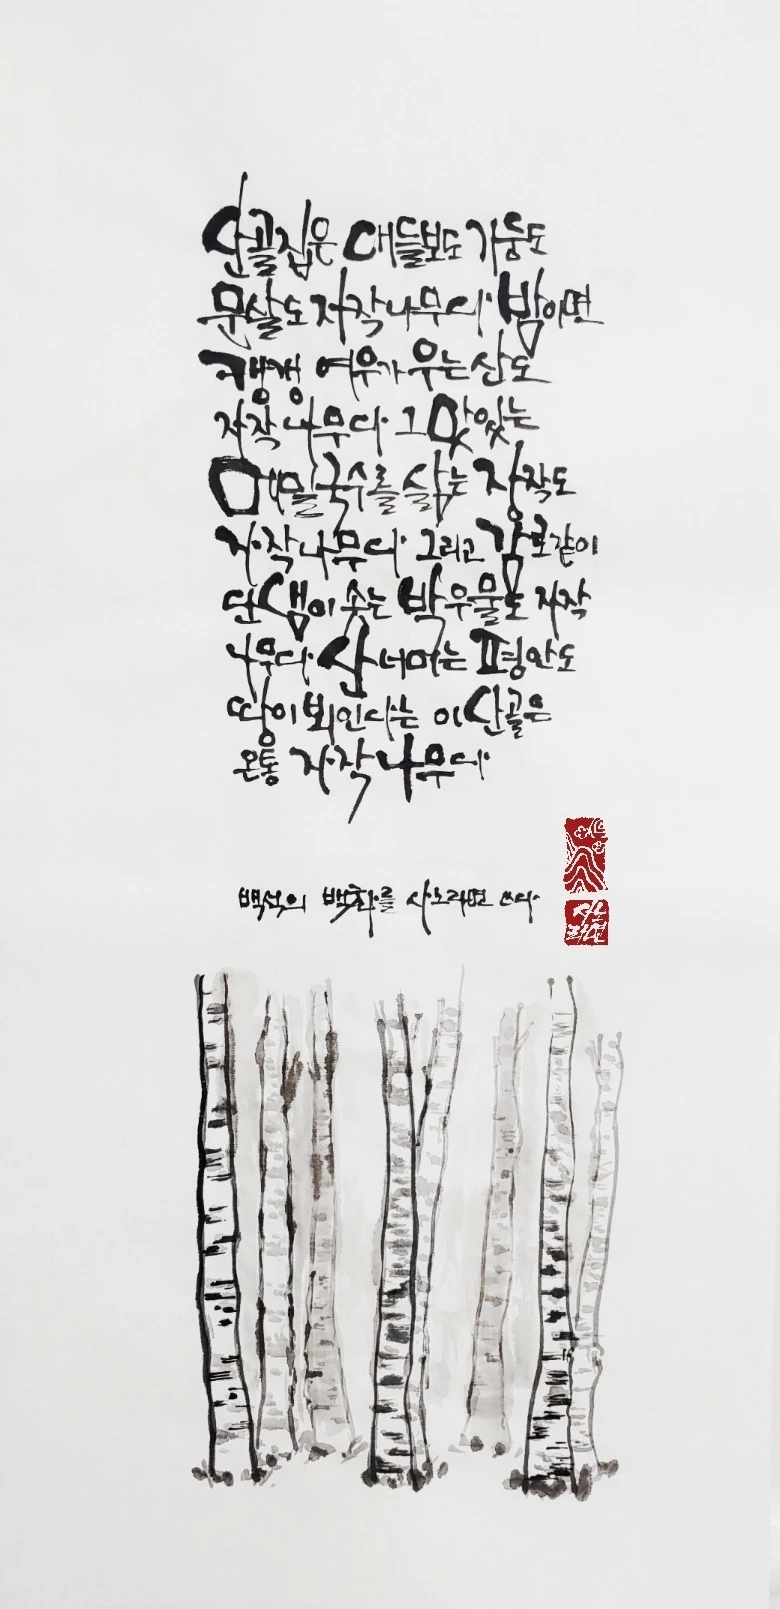 산골집은 대들보도 기둥도
문살도 자작나무다 밤이면
캥캥 여우가 우는 산도
자작나무다 그 맛있는
메밀국수를 삶는 장작도
자작나무다 그리고 감로같이
단샘이 솟는 박우물도 자작
나무다 산너머는 평안도
땅이 뵈인다는 이 산골은
온통 자작나무다
백석의 백화를 사노라면 쓰다
사노
라면